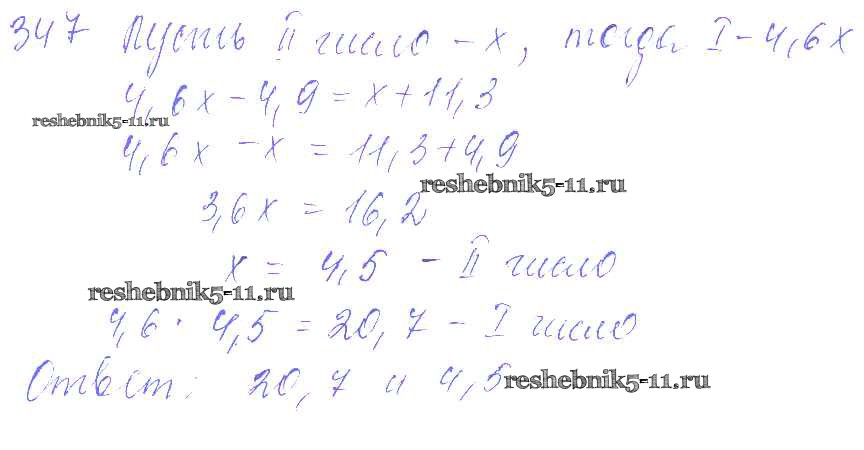 347 Пусть II число - x, тогда I - 4,6x
4,6x - 4,9 = x + 11,3
reshebnik5-11.ru
4,6x - x = 11,3 + 4,9
reshebnik5-11.ru
3,6x = 16,2
x = 4,5 - II число
reshebnik5-11.ru
4,6 · 4,5 = 20,7 - I число
Ответ: 20,7 и 4,5
reshebnik5-11.ru